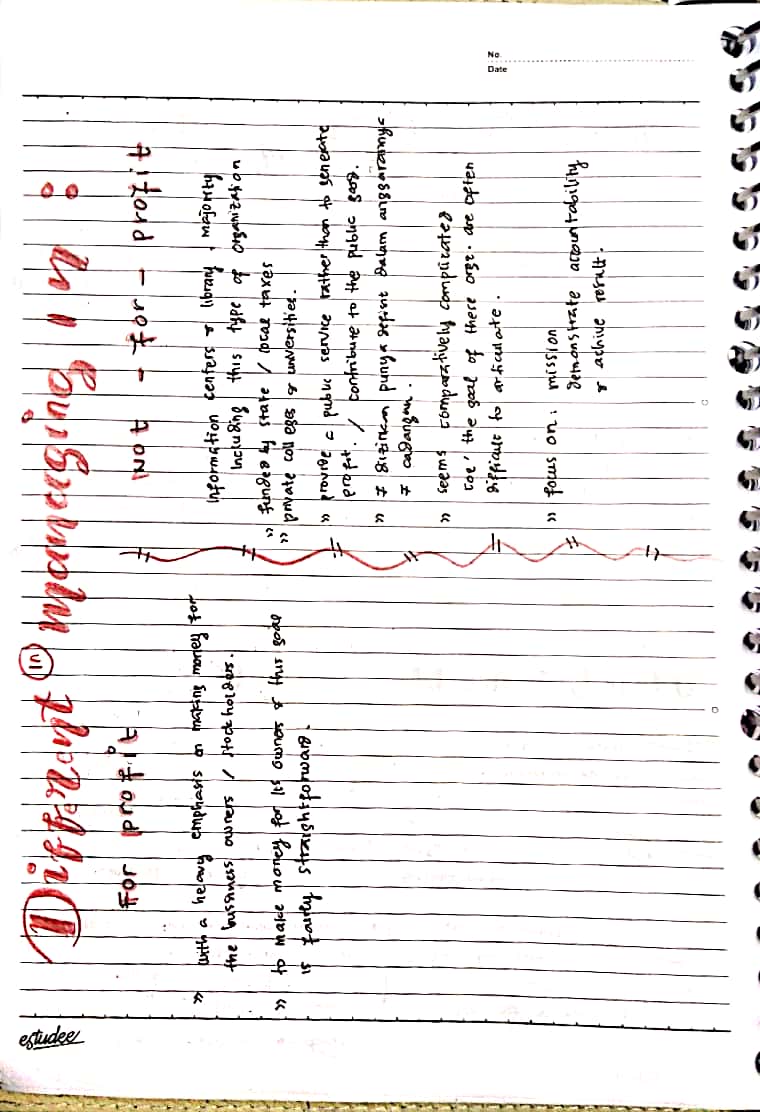 No.
Date
Different in managing in :
For profit
» with a heavy emphasis on making money for
the bussiness owners / stockholders.
» to make money for its owners & this goal
is fairly straightforward.
Not - for - profit
Information centers & library, majority
Including this type of organization
» funded by state / local taxes
» private colleges & universities.
» provide a public service rather than to generate
profit. / contribute to the public good.
» ≠ diizinkan punya defisit dalam anggarannya
≠ cadangan.
» seems comparatively complicated
coz' the goal of these orgz. are often
difficult to articulate.
» focus on : mission
demonstrate accountability
& achive result.
estudee